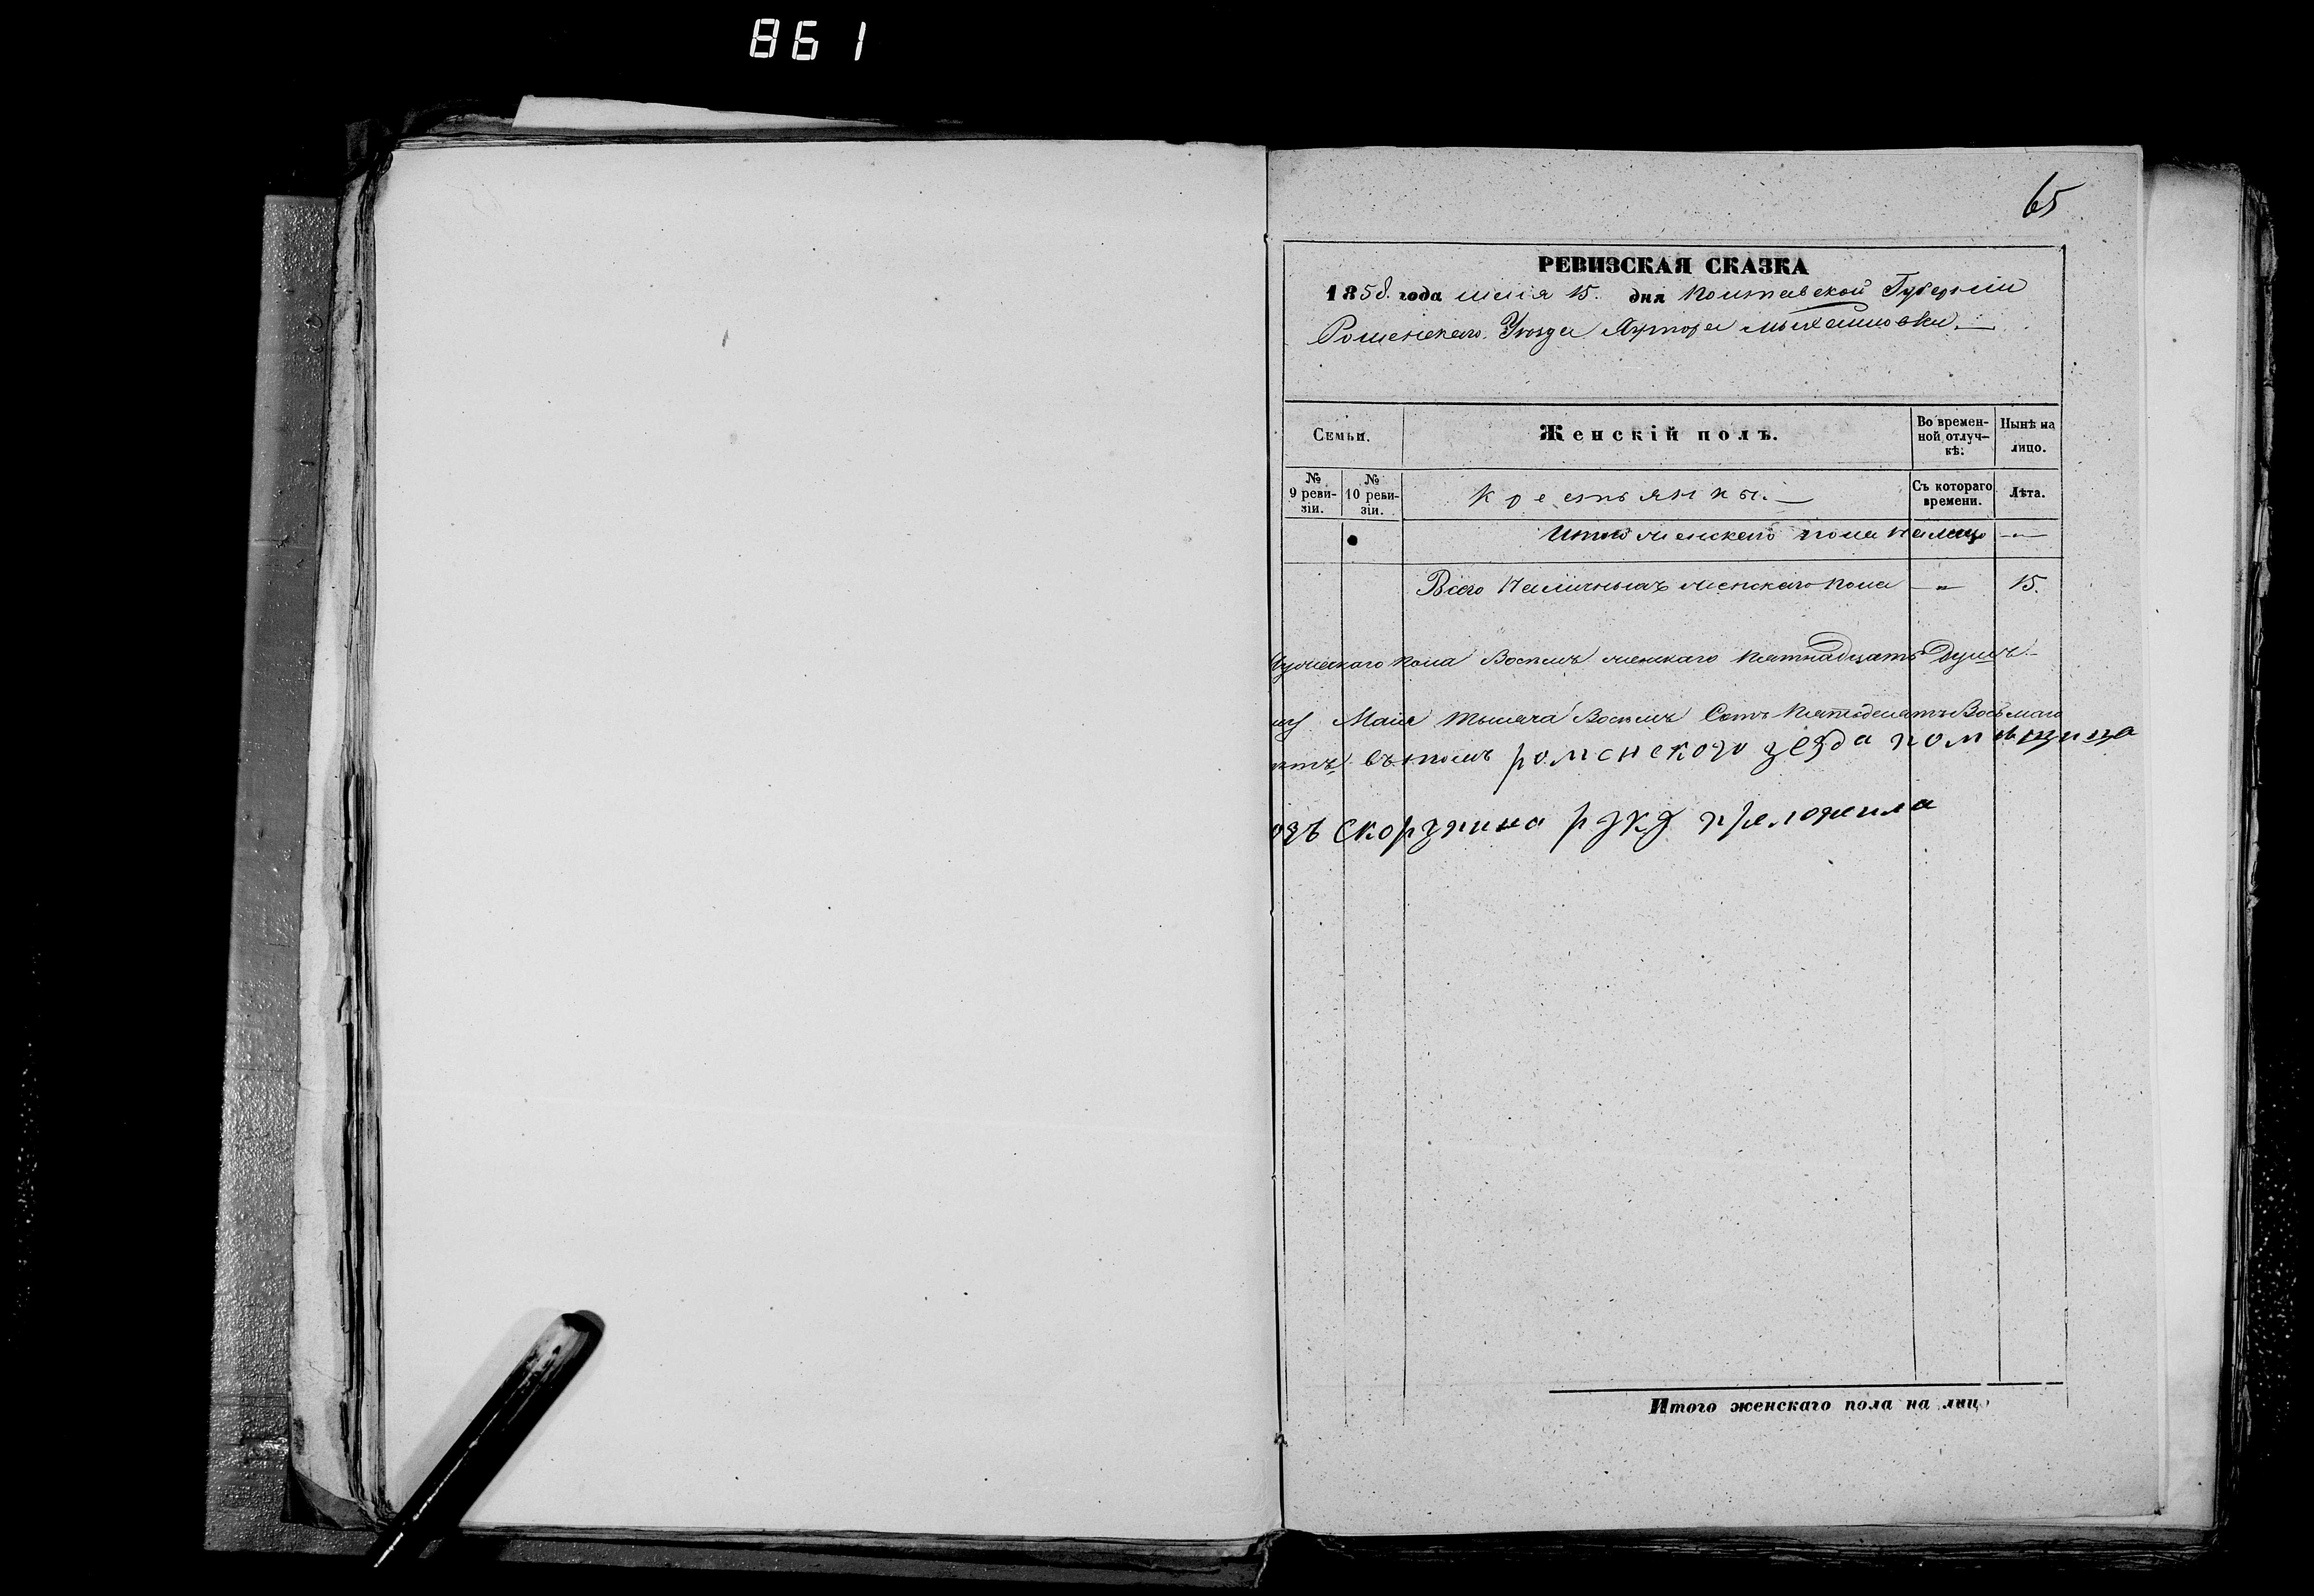 861
65
РЕВИЗСКАЯ СКАЗКА
1858. года маія 15. дня Полтавской Губерніи
Роменскаго Уѣзда Хутора Михайловки.
Семьи. Женскій полъ. Во времен- Нынѣ на
ной отлуч- лицо.
кѣ:
№ № Съ котораго Лѣта.
9 реви- 10 реви- Крестьянки. времени.
зіи. зіи.
Итого женскаго пола на лицо —„—
Всего Наличныхъ женскаго пола —„— 15.
мужескаго пола Восемь женскаго пятнадцать Душъ
Маія тысяча Восемь Сотъ Пятьдесятъ Восьмаго
въ томъ роменского уезда помѣщица
Скорупина руку приложила
Итого женскаго пола на лиц